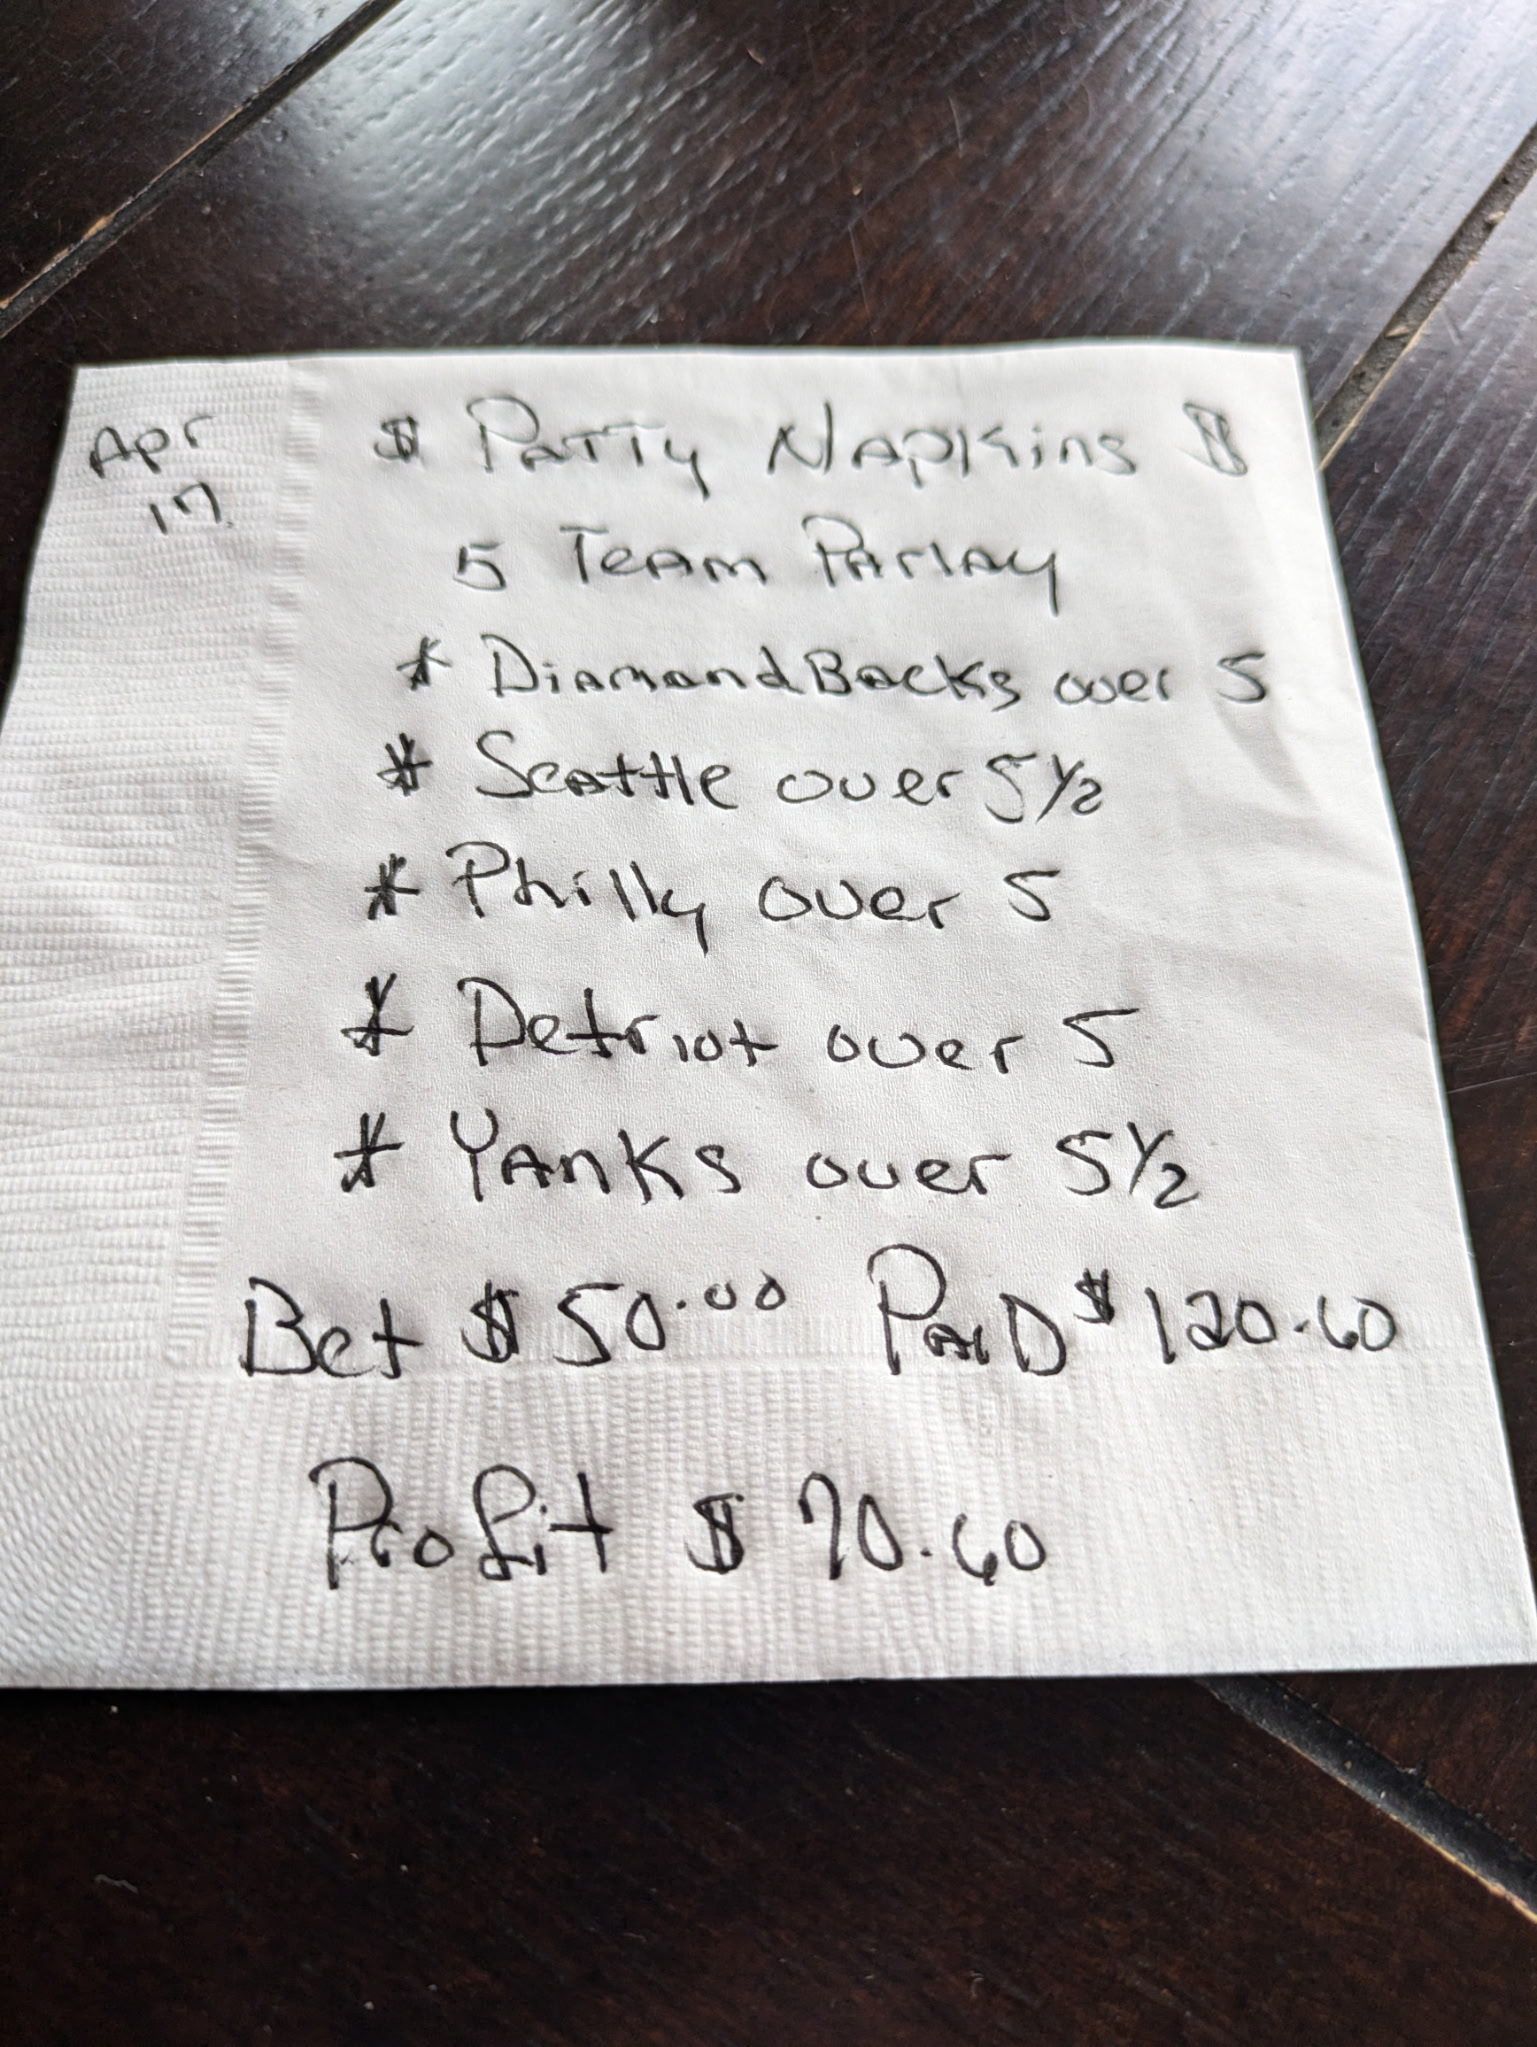 Apr
17
$ Patty Napkins $
5 Team Parlay
* DiamondBacks over 5
* Seattle over 5 1/2
* Philly over 5
* Detriot over 5
* Yanks over 5 1/2
Bet $ 50.00 PaiD $ 120.60
Profit $ 70.60